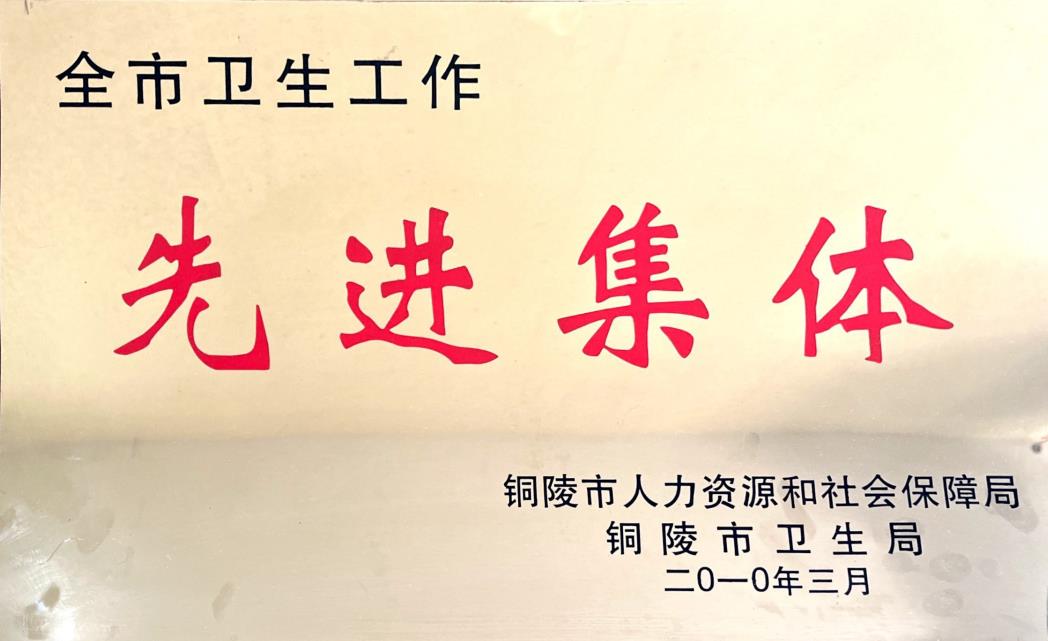 全市卫生工作
先进集体
铜陵市人力资源和社会保障局
铜陵市卫生局
二0一0年三月